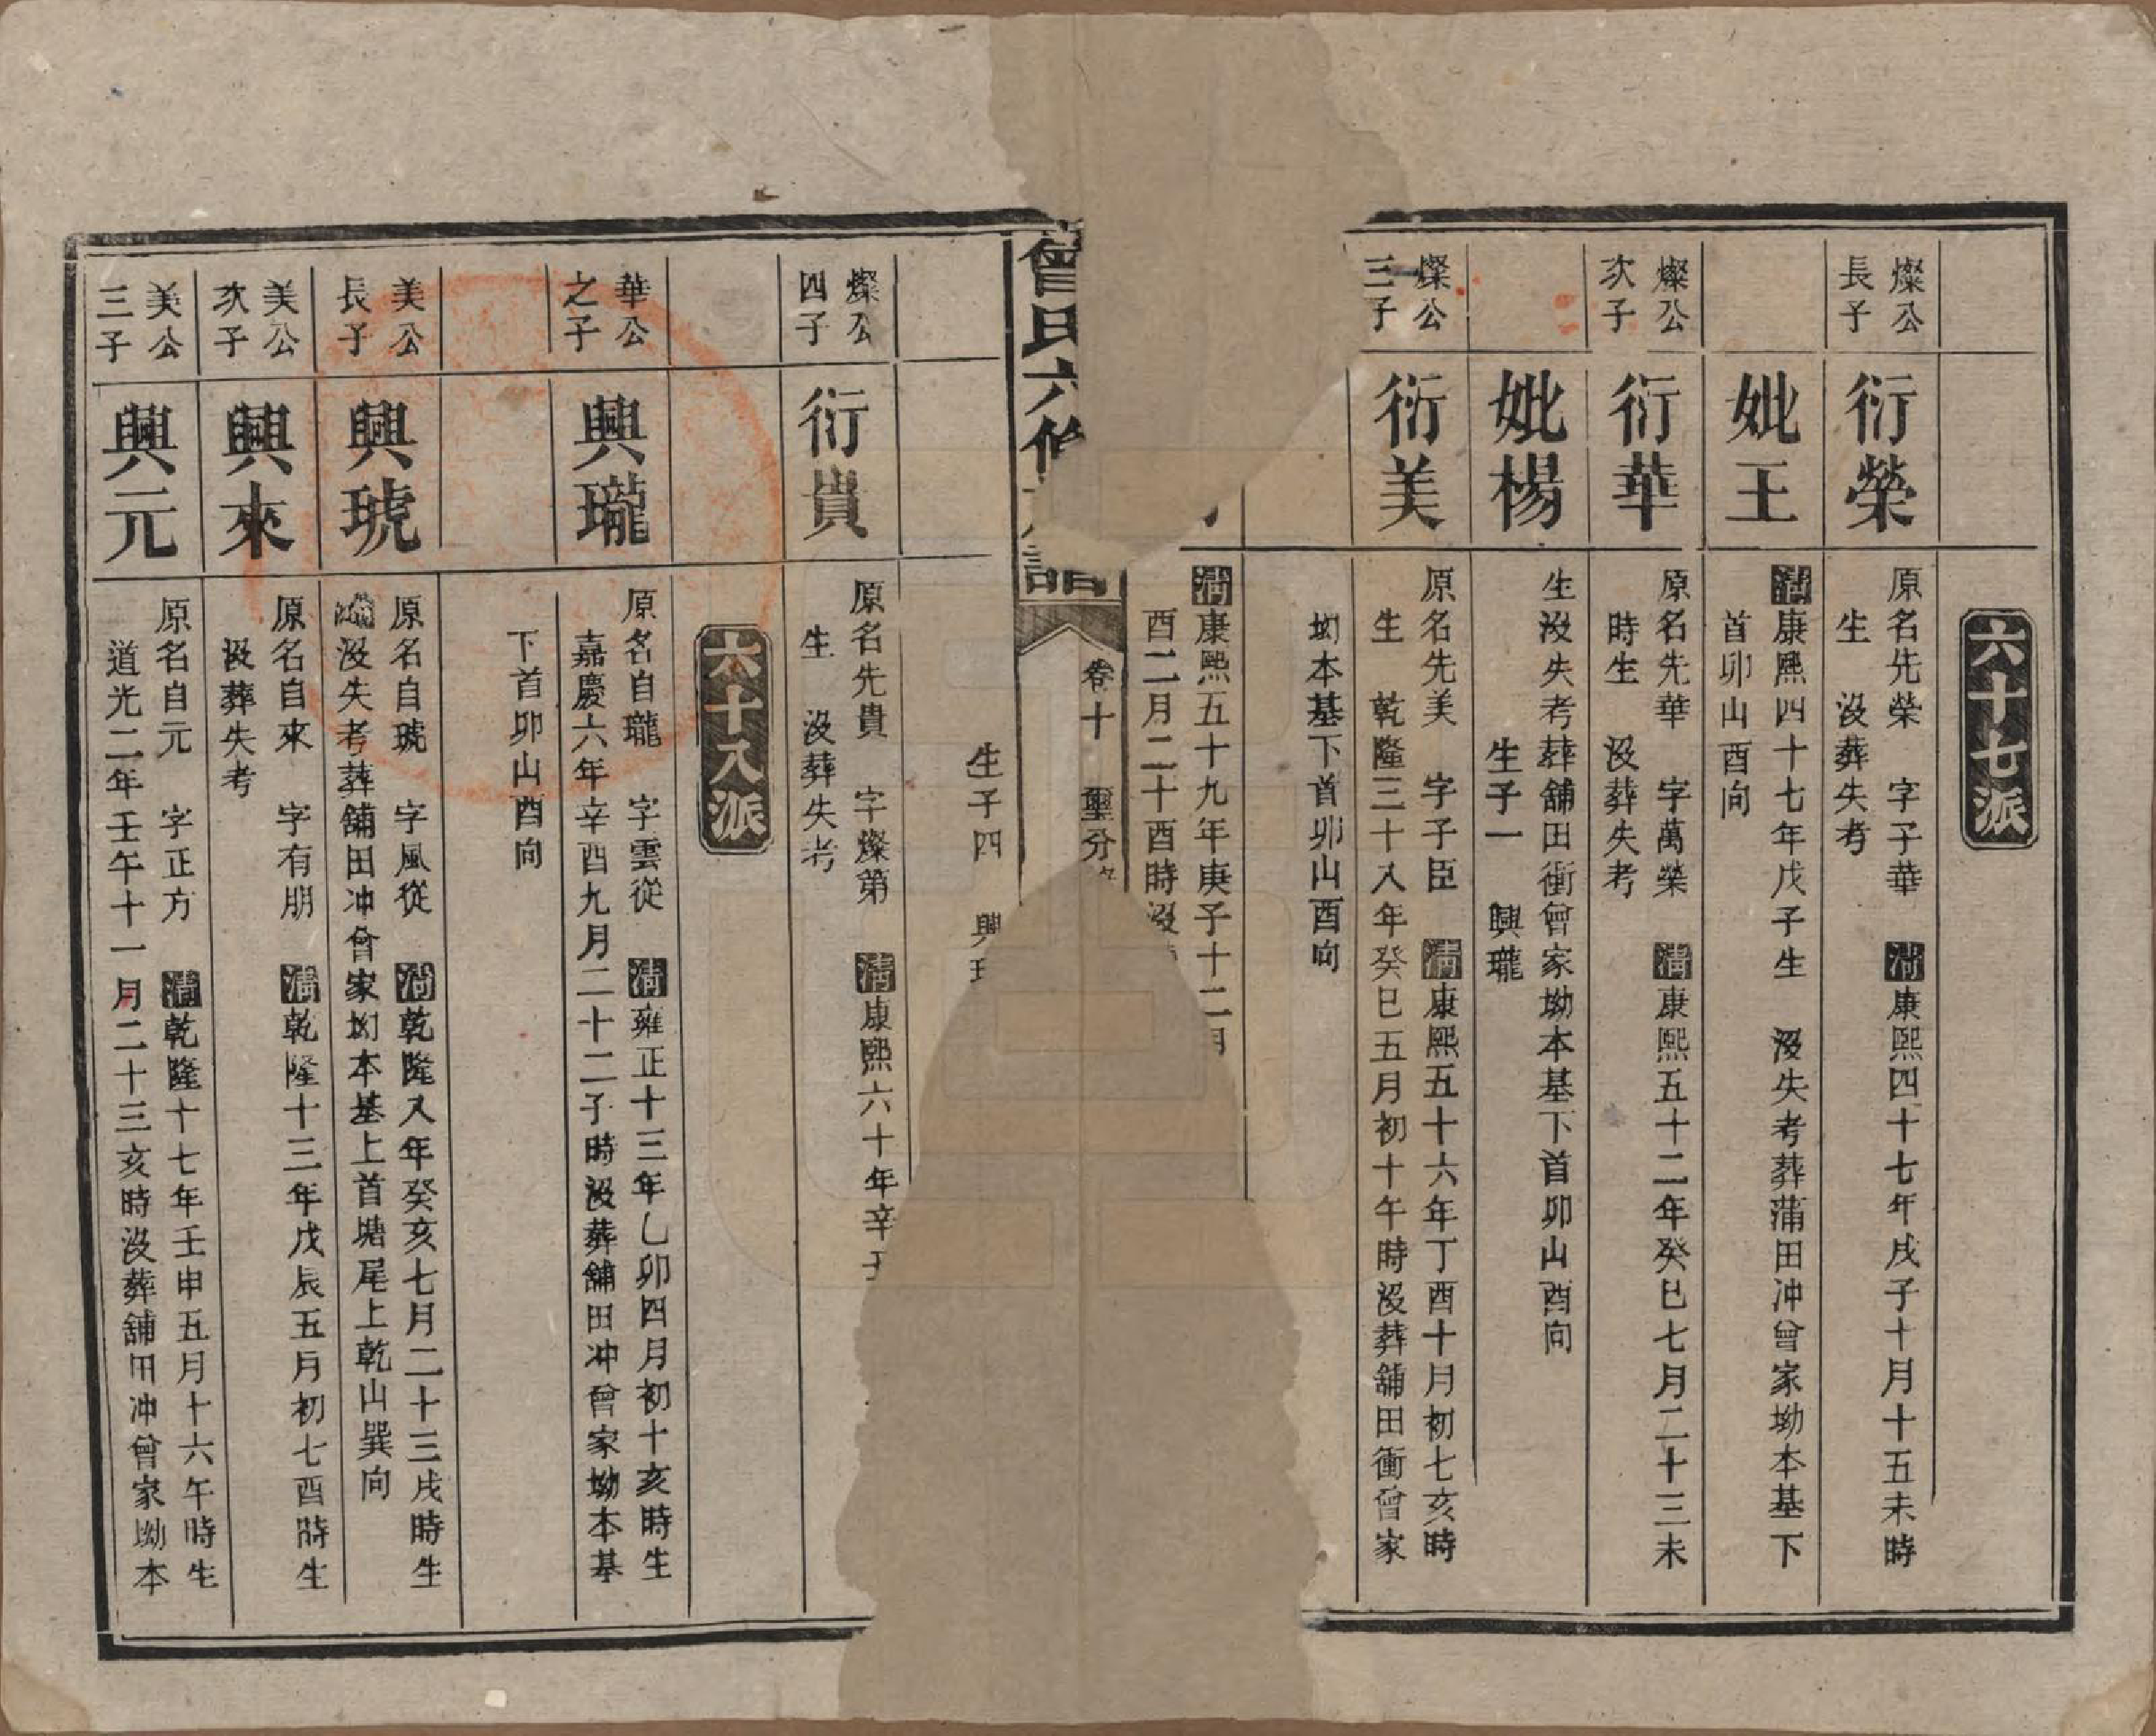 六十七派
燦公
長子
衍榮
原名先榮　字子華　清康熙四十七年戊子十月十五未時
生　沒葬失考
妣王
清康熙四十七年戊子生　沒失考葬蒲田冲曾家坳本基下
首卯山酉向
燦公
次子
衍華
原名先華　字萬榮　清康熙五十二年癸巳七月二十三未
時生　沒葬失考
妣楊
生沒失考葬舖田衝曾家坳本基下首卯山酉向
生子一　興瓏
燦公
三子
衍美
原名先美　字子臣　清康熙五十六年丁酉十月初七亥時
生　乾隆三十八年癸巳五月初十午時沒葬舖田衝曾家
坳本基下首卯山酉向
清康熙五十九年庚子十二月
酉二月二十酉時沒
曾氏六修
譜
卷十　聖分
生子四　興
燦公
四子
衍貴
原名先貴　字燦第　清康熙六十年辛
生　沒葬失考
六十八派
華公
之子
興瓏
原名自瓏　字雲從　清雍正十三年乙卯四月初十亥時生
嘉慶六年辛酉九月二十二子時沒葬舖田冲曾家坳本基
下首卯山酉向
美公
長子
興琥
原名自琥　字風從　清乾隆八年癸亥七月二十三戌時生
沒失考葬舖田冲曾家坳本基上首塘尾上乾山巽向
美公
次子
興來
原名自來　字有朋　清乾隆十三年戊辰五月初七酉時生
沒葬失考
美公
三子
興元
原名自元　字正方　清乾隆十七年壬申五月十六午時生
道光二年壬午十一月二十三亥時沒葬舖田冲曾家坳本